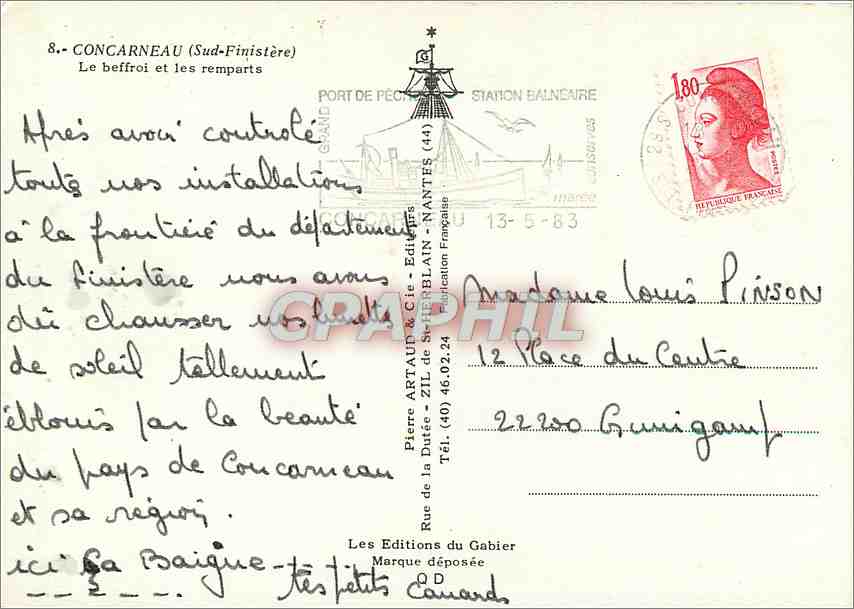 8.- CONCARNEAU (Sud-Finistère)
Le beffroi et les remparts
GRAND PORT DE PÊCHE STATION BALNÉAIRE
conserves
marée
CONCARNEAU 13-5-83
1,80
RÉPUBLIQUE FRANÇAISE
Après avoir controlé
toute nos installations
à la frontière du département
du Finistère nous avons
dû chausser nos lunettes
de soleil tellement
éblouis par la beauté
du pays de Concarneau
et sa région.
ici ça Baigne - - - -
tes petits canards
Pierre ARTAUD & Cie - Editeurs
Rue de la Dutée - ZIL de St-HERBLAIN - NANTES (44)
Tél. (40) 46.02.24 Fabrication Française
Madame Louis PINSON
12 Place du Centre
22200 Guingamp
Les Editions du Gabier
Marque déposée
Q D
CPAPHIL